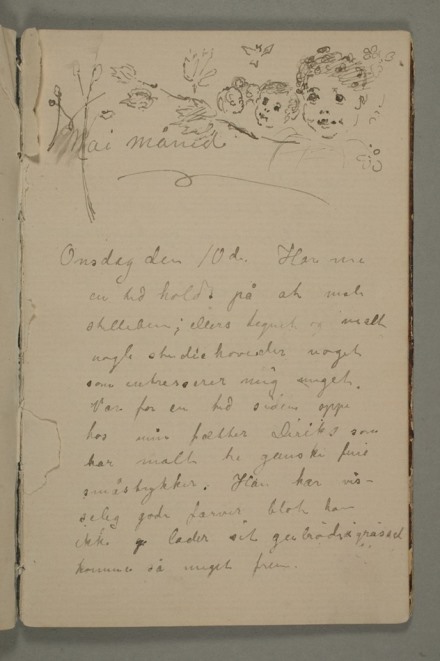 Mai måned
Onsdag den 10de. Har nu
en tid holdt på at male
stilleben; ellers tegnet og malt
nogle studiehoveder noget
som intresserer mig meget.
Var for en tid siden oppe
hos min fætter Diriks som
har malt to ganske fine
småstykker. Han har vis-
selig gode farver blot han
ikke lader sit
kommer så meget frem.